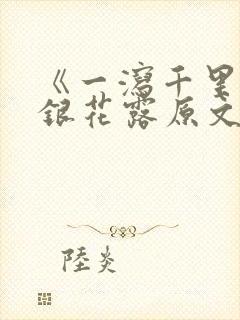 《一瀉千里
銀花露原文
陸炎